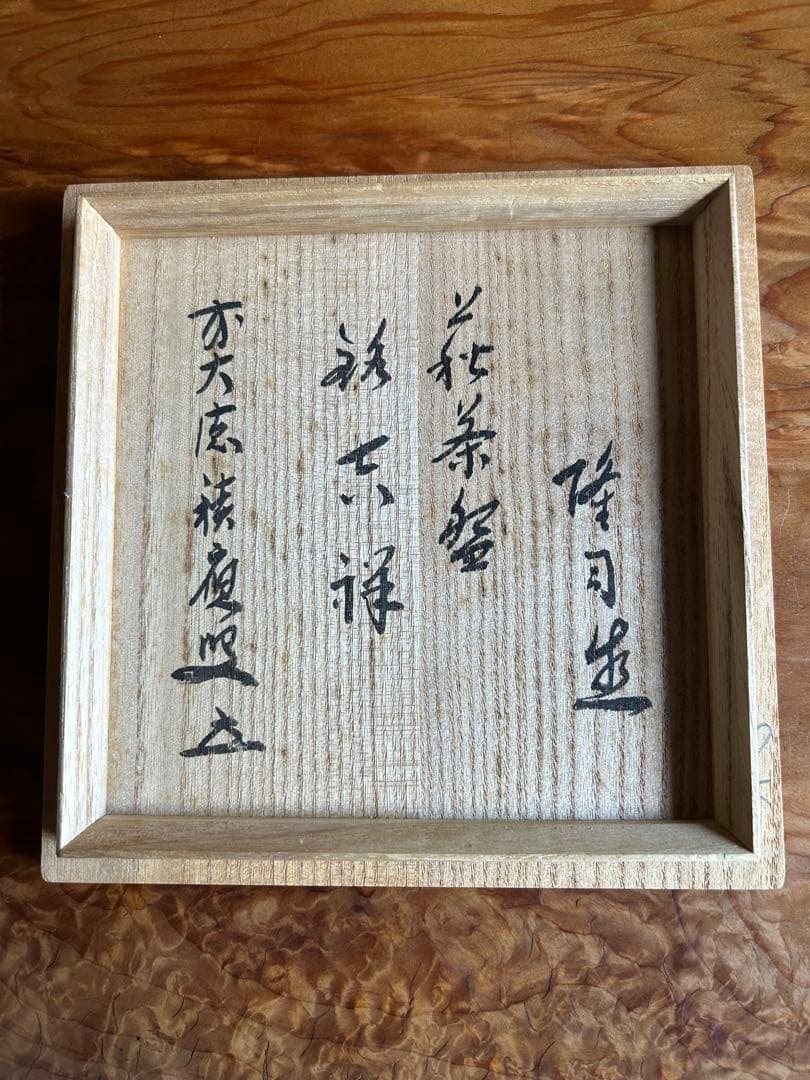 隆司造
萩茶盌
銘 吉祥
前大徳積應